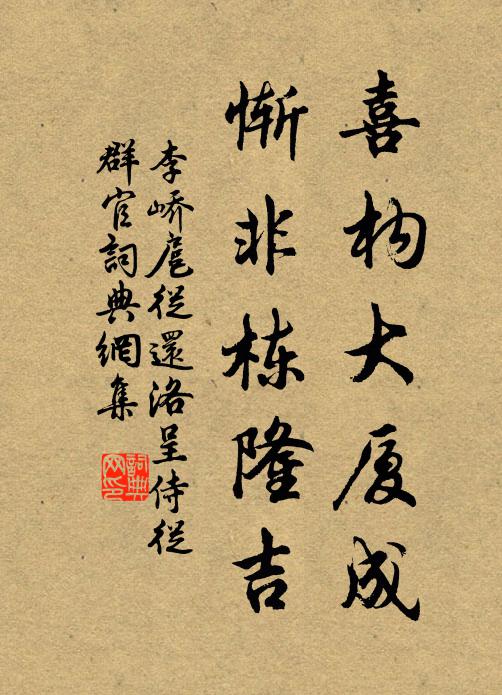 喜构大厦成
惭非栋隆吉
李嶠扈従還洛呈侍従
群官詞典網集
詞典网印